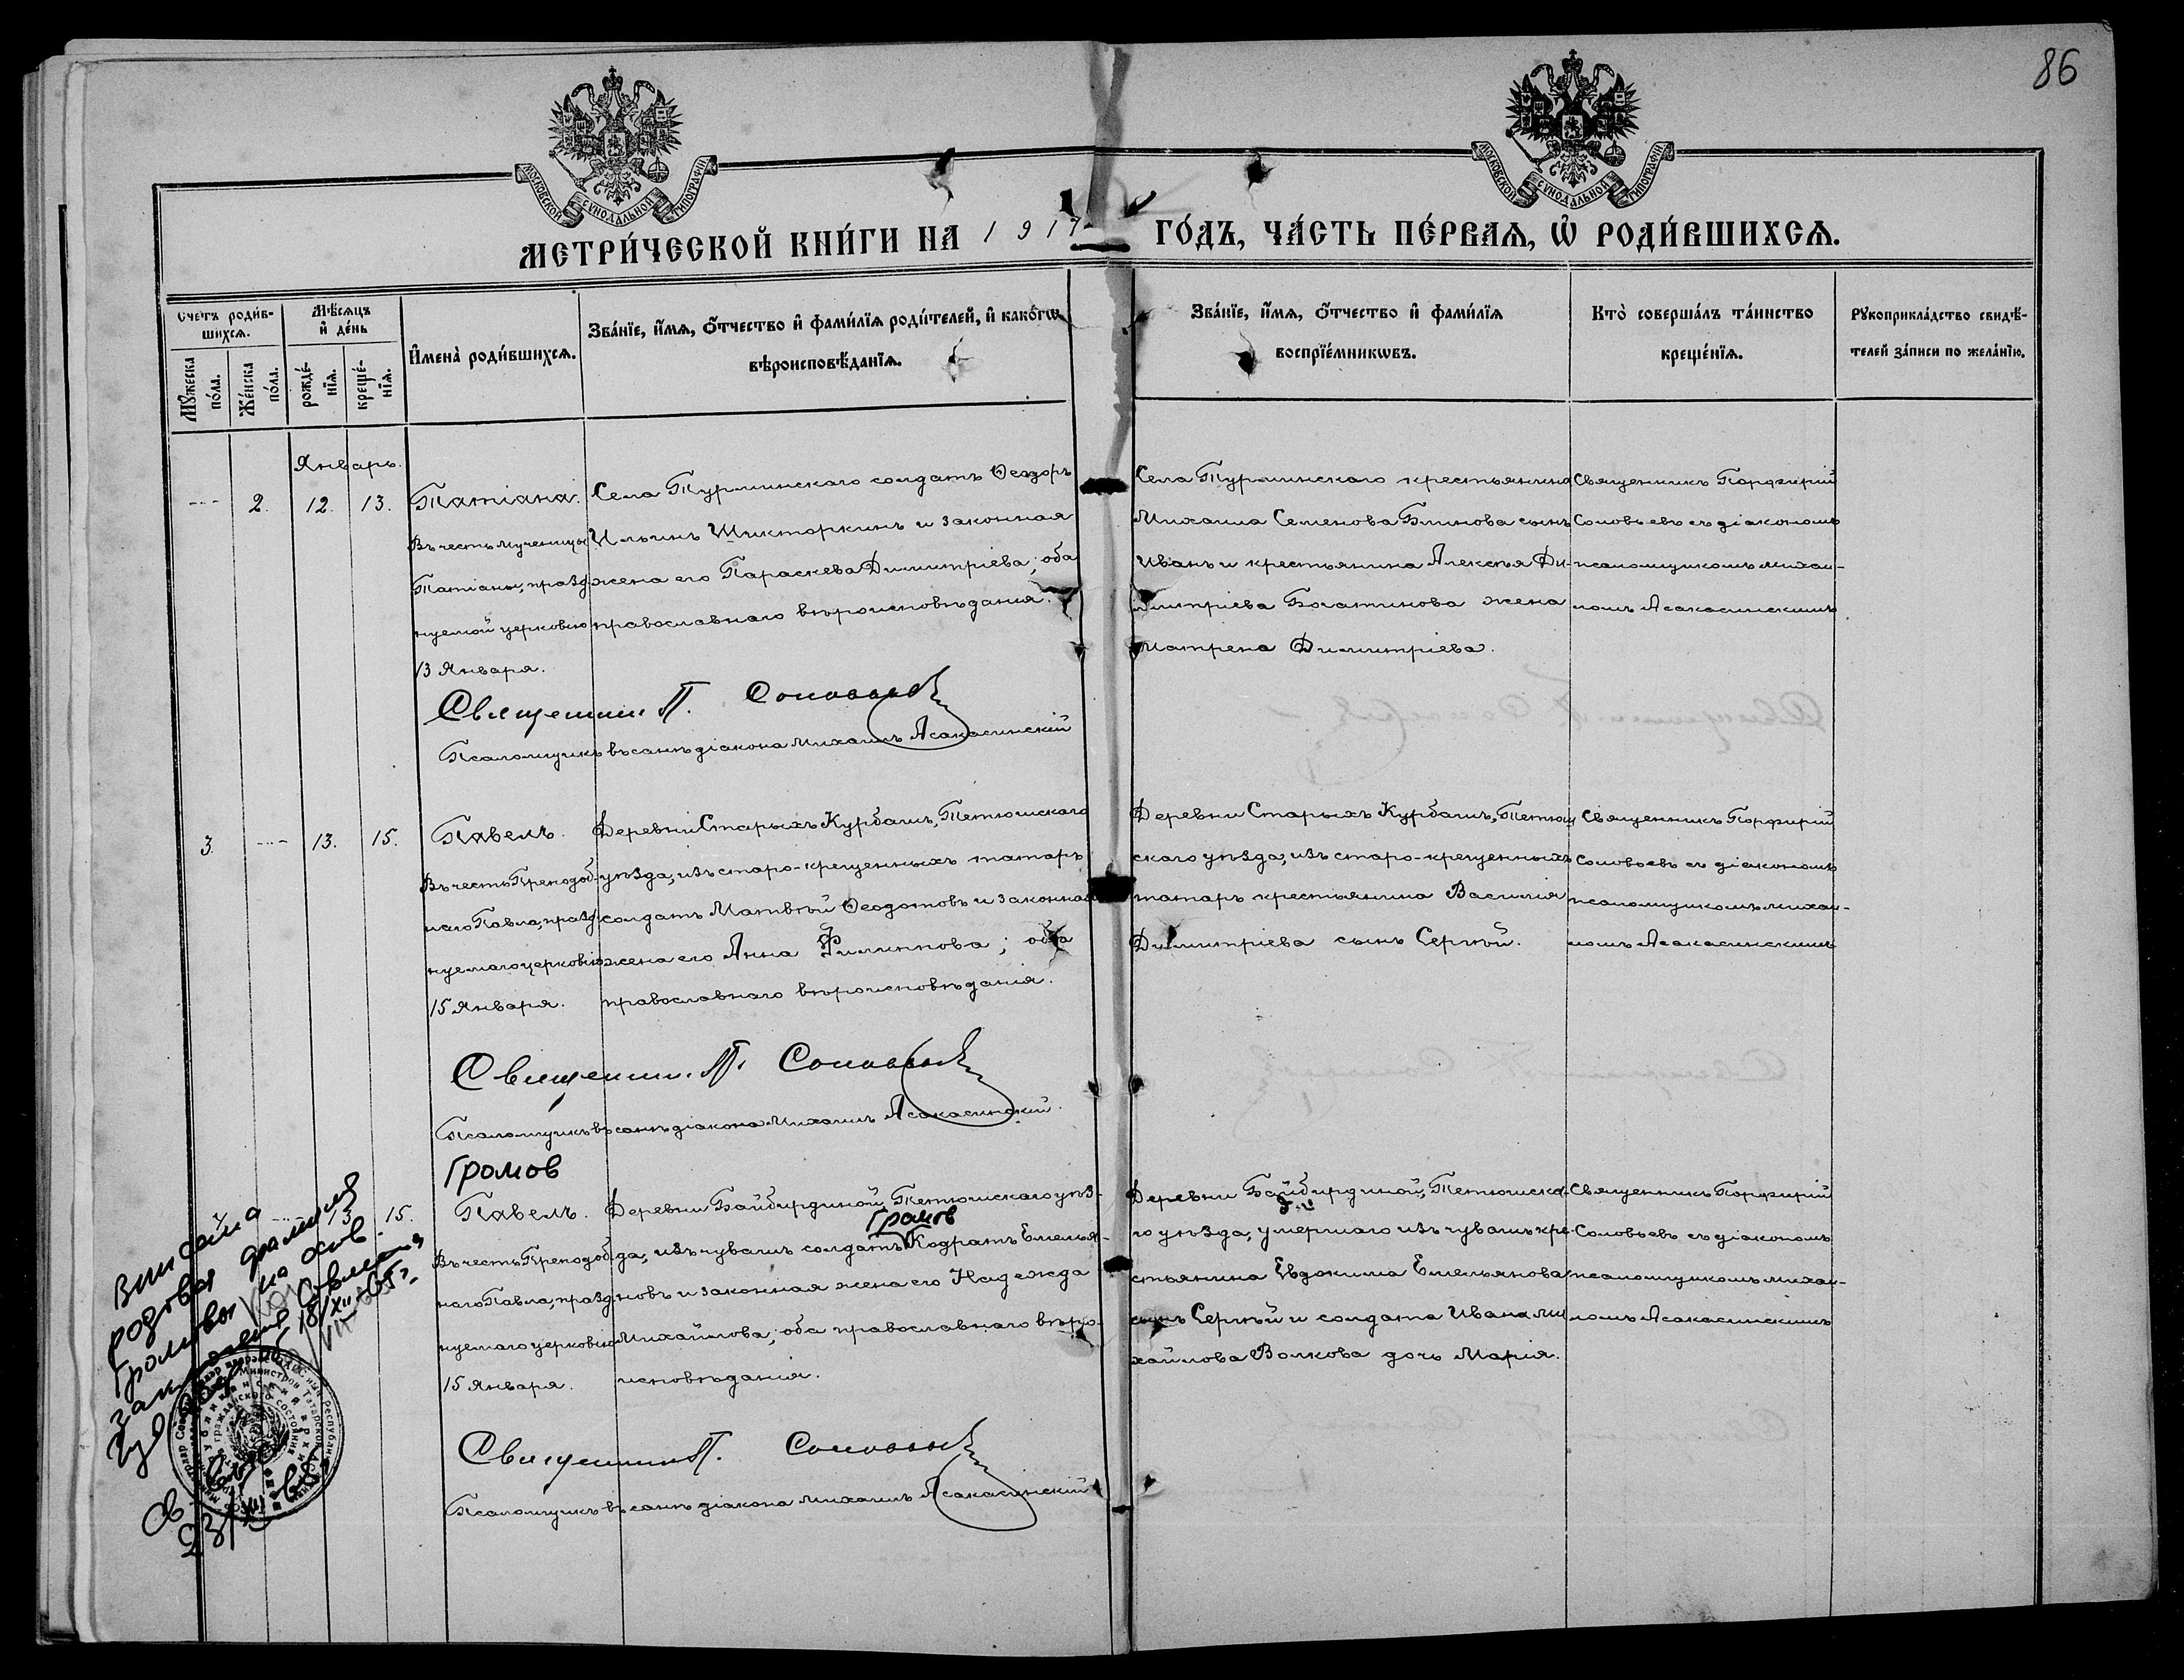 86
МОСКОВСКОЙ СУНОДАЛЬНОЙ ТИПОГРАФІИ
МОСКОВСКОЙ СУНОДАЛЬНОЙ ТИПОГРАФІИ
МЕТРИ́ЧЕСКОЙ КНИ́ГИ НА 1917 ГО́ДЪ, ЧА́СТЬ ПЕ́РВАѦ, Ѡ РОДИ́ВШИХСѦ.
Счетъ роди́в-
шихсѧ.
Мѣсѧцъ
и҆ де́нь
Мꙋжеска
по́ла.
Же́нска
по́ла.
рожде́-
нїѧ.
креще́-
нїѧ.
И҆мена̀ роди́вшихсѧ.
Зва́нїе, и҆́мѧ, ѻ҆́тчество и҆ фами́лїѧ роди́телей, и҆ како́гѡ
вѣроисповѣ́данїѧ.
Зва́нїе, и҆́мѧ, ѻ҆́тчество и҆ фами́лїѧ
воспрїе́мникѡвъ.
Кто̀ соверша́лъ та́инство
креще́нїѧ.
Рꙋкоприкла́дство свидѣ́-
телей за́писи по жела́нїю.
Январь.
2. 12. 13.
Татіана.
Въ честь мученицы
Татіаны, празд
нуемой церковію
13 Января.
Села Турминскаго солдатъ Ѳеодоръ
Ильинъ Шикторкинъ и законная
жена его Параскева Димитріева; оба
православнаго вѣроисповѣданія.
Села Турминскаго крестьянина
Михаила Семенова Блинова сынъ
Иванъ и крестьянина Алексѣя Ди-
митріева Богатикова жена
Матрена Димитріева.
Священникъ Порфирій
Соловьевъ съ діакономъ
псаломщикомъ Михаи-
ломъ Асакасинскимъ
Священник П. Соловьев
Псаломщикъ въ санѣ діакона Михаилъ Асакасинскій
3. 13. 15.
Павелъ.
Въ честь Преподоб-
наго Павла, празд
нуемаго церковію
15 Января.
Деревни Старыхъ Курбашъ, Тетюшскаго
уѣзда, изъ старо-крещенныхъ татаръ
солдатъ Матвѣй Ѳеодотовъ и законная
жена его Анна Филиппова; оба
православнаго вѣроисповѣданія.
Деревни Старыхъ Курбашъ, Тетюш
скаго уѣзда, изъ старо-крещенныхъ
татаръ крестьянина Василія
Димитріева сынъ Сергѣй.
Священникъ Порфирій
Соловьевъ съ діакономъ
псаломщикомъ Михаи-
ломъ Асакасинскимъ
Священник П. Соловьев
Псаломщикъ въ санѣ діакона Михаилъ Асакасинскій.
13 15.
Громов
Павелъ.
Въ честь Преподоб
наго Павла, празд
нуемаго церковію
15 Января.
Деревни Байбирдиной, Тетюшскаго уѣз-
Громов
да, изъ чувашъ солдатъ Кодратъ Емелья-
новъ и законная жена его Надежда
Михайлова; оба православнаго вѣро-
исповѣданія.
Деревни Байбирдиной, Тетюшска-
го уѣзда, умершаго изъ чувашъ кре-
стьянина Евдокима Емельянова
сынъ Сергѣй и солдата Ивана Ми
хайлова Волкова дочь Марія.
Священникъ Порфирій
Соловьевъ съ діакономъ
псаломщикомъ Михаи-
ломъ Асакасинскимъ
Священник П. Соловьев
Псаломщикъ въ санѣ діакона Михаилъ Асакасинскій
Вписана
родовая фамилия
Громов на основ.
заключения